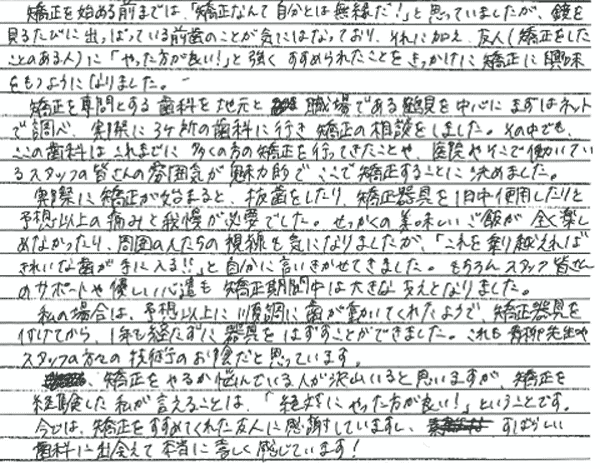 矯正を始める前までは、「矯正なんて自分とは無縁だ!」と思っていましたが、鏡を
見るたびに出っぱっている前歯のことが気にはなっており、それに加え、友人(矯正をした
ことのある人)に「やった方が良い!」と強くすすめられたことをきっかけに矯正に興味
をもつようになりました。
矯正を専門とする歯科を地元と職場である鶴見を中心にまずはネット
で調べ、実際に3ヶ所の歯科に行き矯正の相談をしました。その中でも、
ここの歯科はこれまでに多くの方の矯正を行ってきたことや、医院やそこで働いてい
るスタッフの皆さんの雰囲気が魅力的でここで矯正することに決めました。
実際に矯正が始まると、抜歯をしたり、矯正器具を1日中使用したりと
予想以上の痛みと我慢が必要でした。せっかくの美味しいご飯が全く楽し
めなかったり、周囲の人たちの視線も気になりましたが、「これを乗り越えれば
きれいな歯が手に入る!!」と自分に言いきかせてきました。もちろんスタッフ皆さん
のサポートや優しい心遣も矯正期間中は大きな支えとなりました。
私の場合は、予想以上に順調に歯が動いてくれたようで、矯正器具を
付けてから、1年も経たずに器具をはずすことができました。これも青柳先生や
スタッフの方々の技術のお陰だと思っています。
、矯正をやるか悩んでいる人が沢山いると思いますが、矯正を
経験した私が言えることは、「絶対にやった方が良い!」ということです。
今では、矯正をすすめてくれた友人に感謝していますし、すばらしい
歯科に出会えて本当に嬉しく感じています!